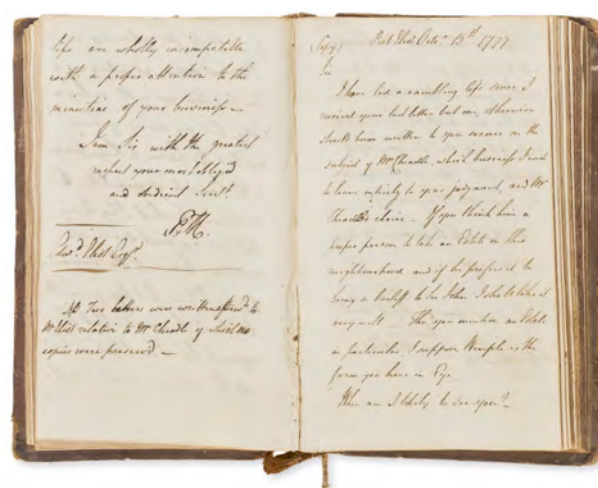 life are wholly incompatible
with a proper attention to the
minutiae of your business —
I am Sir with the greatest
respect your most obliged
and Obedient Servt.
Edwd. Eliot Esqr.
NB Two letters were written to
Mr Eliot relative to Mr Cheadle of which no
copies were preserved —
(Copy) Port Eliot Octr. 13th 1777
Sir
I have led a rambling life since I
received your last letter but one, otherwise
should have written to you sooner on the
subject of Mr Cheadle, which business I wish
to leave entirely to your judgment, and Mr
Cheadle's choice — If you think him a
proper person to take an Estate in this
neighbourhood and if he prefers it to
being a bailiff to Sir John St
very well — Tho' you mention no Estate
in particular, I suppose is the
farm you have in Eye
When am I likely to see you? —